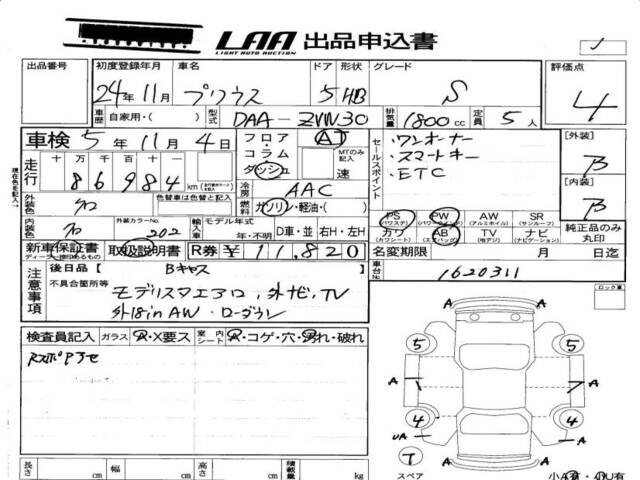 LAA 出品申込書
LIGHT AUTO AUCTION
出品番号 初度登録年月 車名 ドア 形状 グレード 評価点
24年11月 プリウス 5 HB S 4
車歴 自家用・( ) 型式 DAA-ZVW30 排気量 1800cc 定員 5人
車検 5年11月4日 フロア・コラム・ダッシュ AT MTのみ記入 速
セールスポイント
・ワンオーナー
・スマートキー
・ETC
[外装] B
[内装] B
現在色を記入
走行 十万 万 千 百 十 一
8 6 9 8 4 km
冷房 AAC
外装色 クロ 色替車は色替前の色( ) 燃料 ガソリン・軽油・( )
内装色 クロ 外装カラーNo. 202 輸入車 モデル年式 年・不明 D車・並 右H・左H
PS (パワステ) PW (パワーウィンドウ) AW (アルミホイル) SR (サンルーフ)
カワ (カワシート) AB (エアバッグ) TV (地デジ) ナビ (ナビゲーション)
純正品のみ丸印
新車保証書 取扱説明書 R券 ¥ 11,820
名変期限 月 日迄
注意事項 後日品 Bキャス
不具合箇所等
モデリスタエアロ,外ナビ,TV
外18inAW ローダウン
車台No. 1620311
ロック車
検査員記入 ガラス A・X要ス 室内シート A・コゲ・穴・汚れ・破れ
5 5
A A A A
4 4
UA A
T
スペア
A
長さ cm 幅 cm 高さ cm 積載量 kg
小A有・小U有